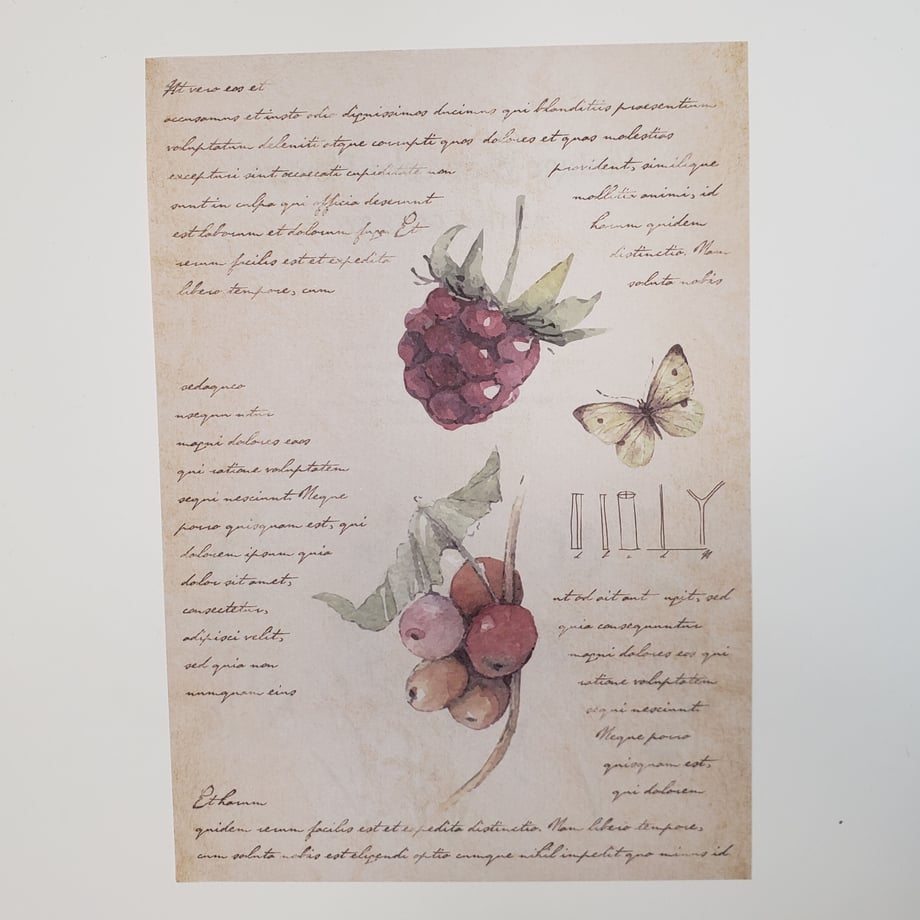 At vero eos et
accusamus et iusto odio dignissimos ducimus qui blanditiis praesentium
voluptatum deleniti atque corrupti quos dolores et quas molestias
excepturi sint occaecati cupiditate non provident, similique
sunt in culpa qui officia deserunt mollitia animi, id
est laborum et dolorum fuga. Et harum quidem
rerum facilis est et expedita distinctio. Nam
libero tempore, cum soluta nobis
sedquco
nsequn ntur
magni dolores eaos
qui ratione voluptatem
sequi nesciunt. Neque
porro quisquam est, qui
dolorem ipsum quia
dolor sit amet,
consectetur,
adipisci velit,
sed quia non
numquam eius
ut od oit aut ugit, sed
quia consequuntur
magni dolores eos qui
ratione voluptatem
sequi nesciunt.
Neque porro
quisquam est,
qui dolorem
Et harum
quidem rerum facilis est et expedita distinctio. Nam libero tempore,
cum soluta nobis est eligendi optio cumque nihil impedit quo minus id